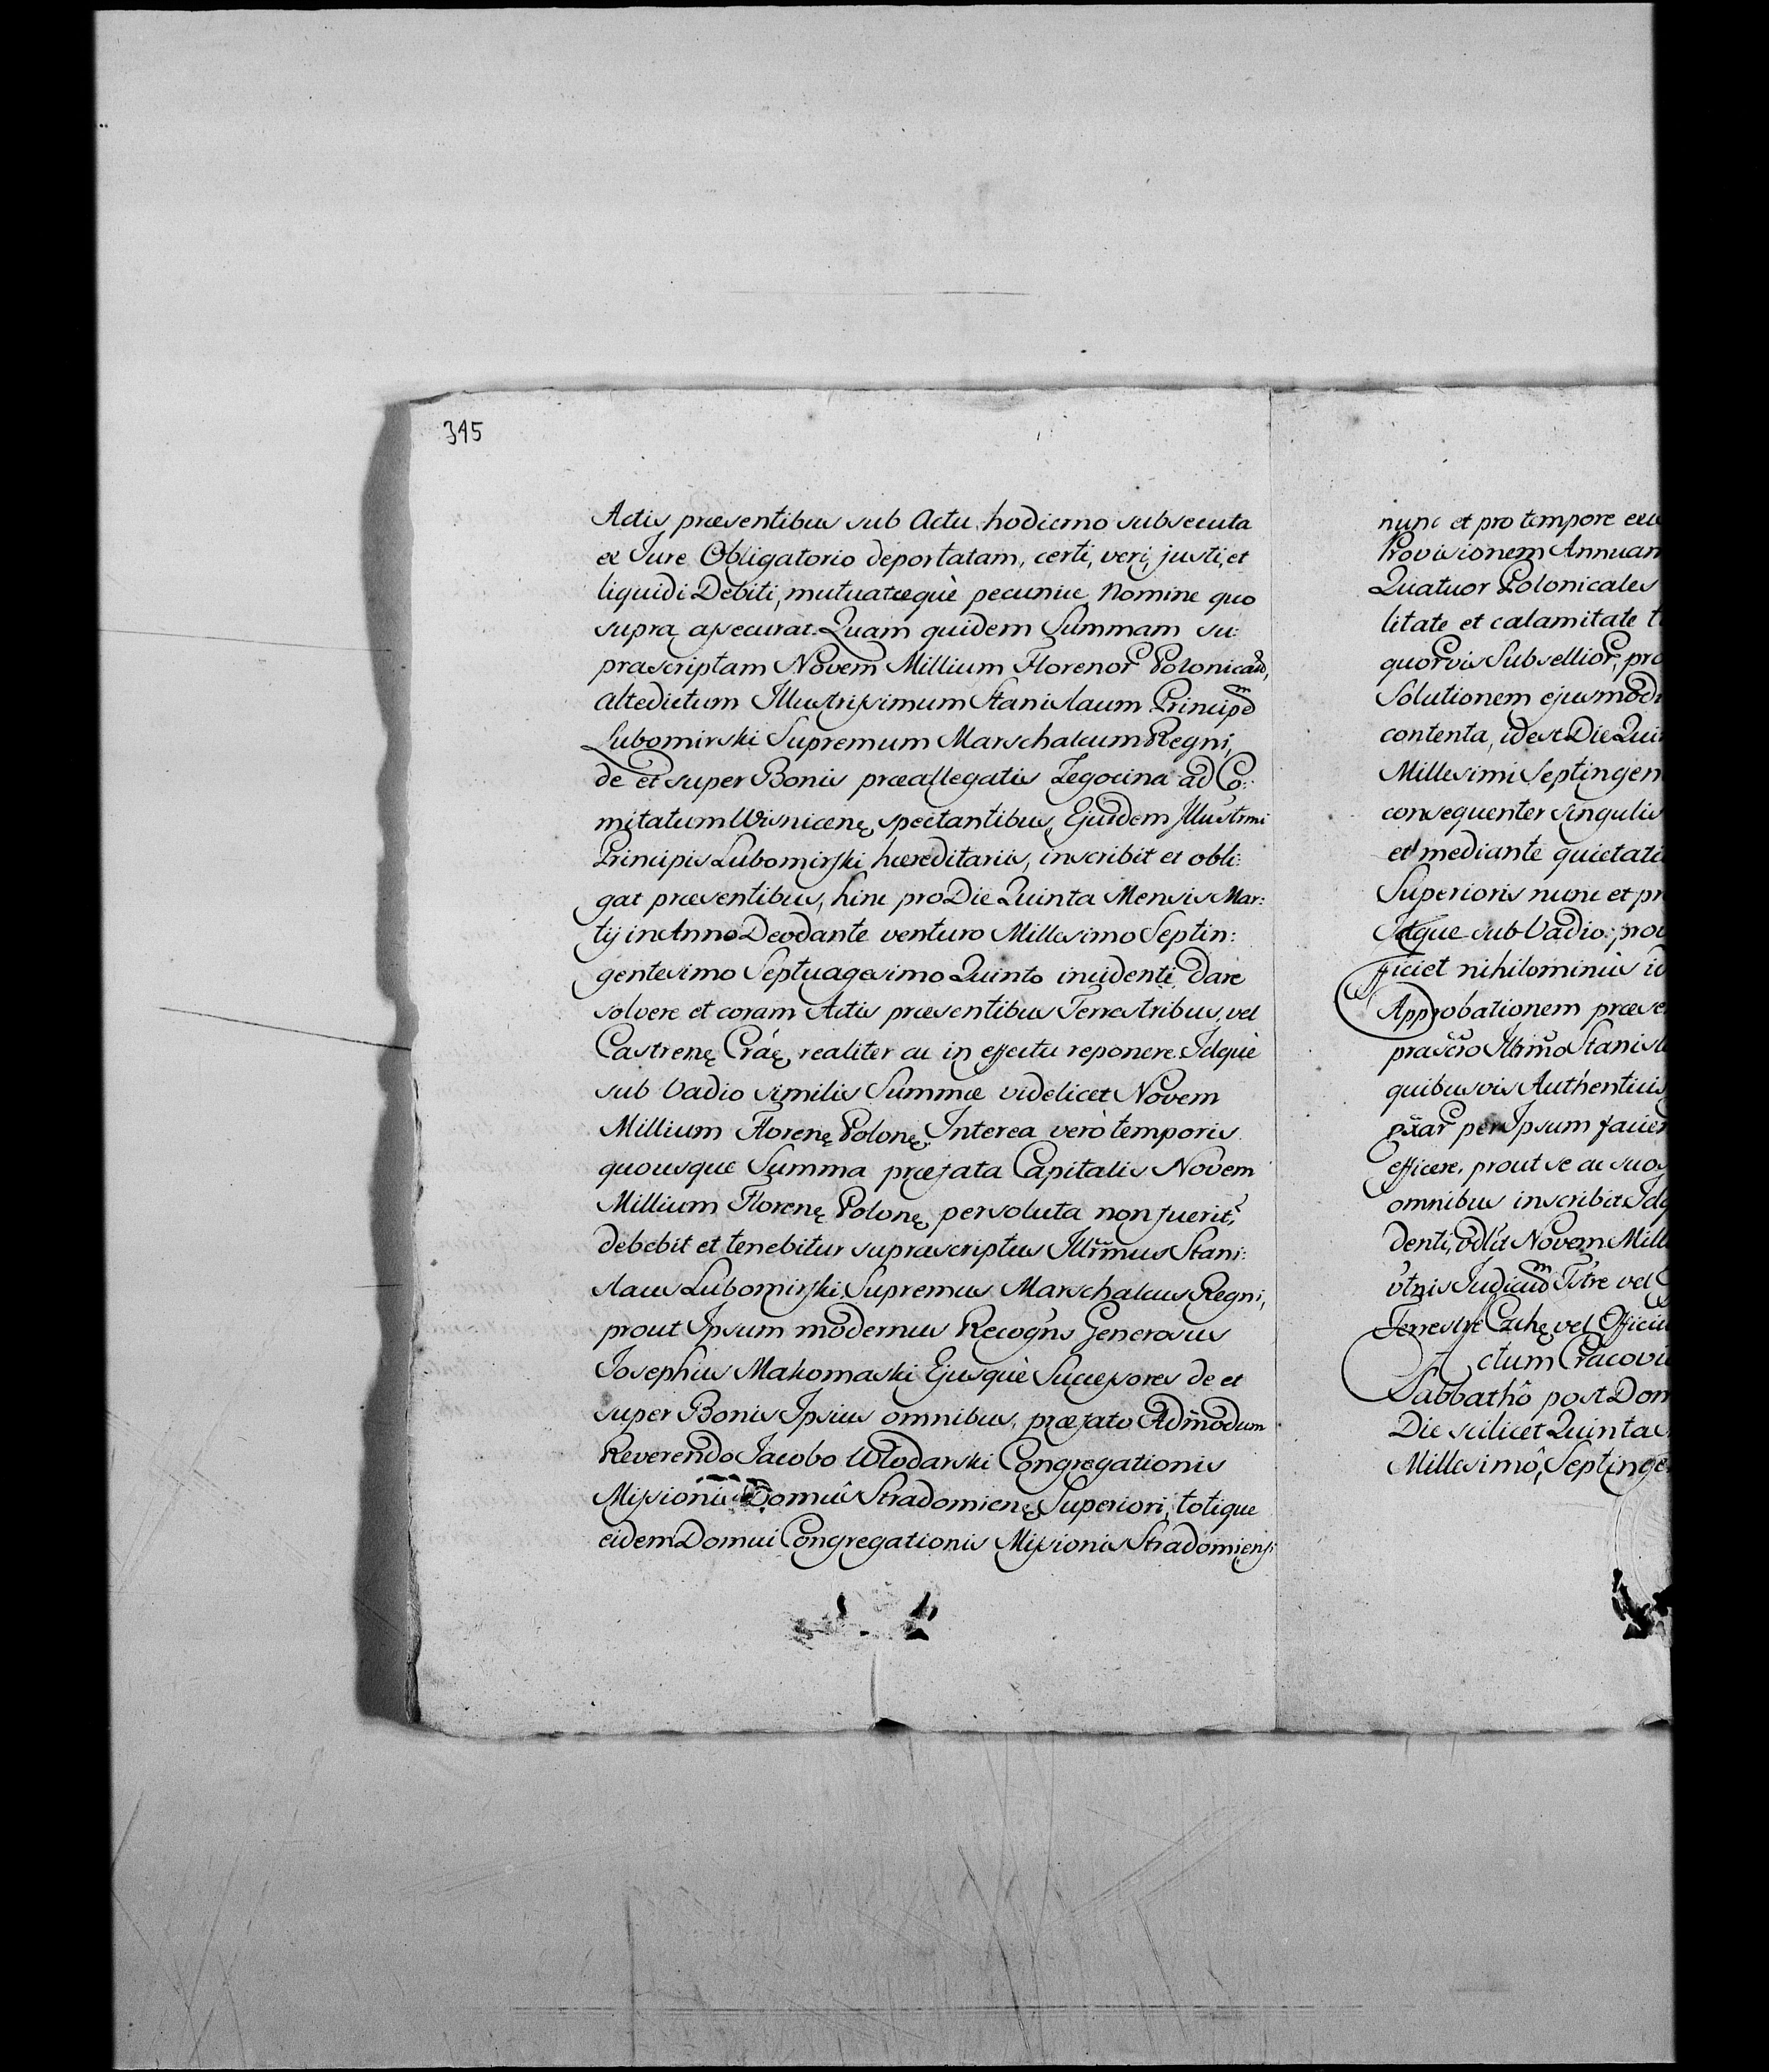 345
Actis præsentibus sub Actu hodierno subsecuta
ex Jure Obligatorio deportatam, certi, veri, justi, et
liquidi Debiti, mutuatæquè pecuniæ, Nomine quo
supra assecurat. Quam quidem Summam su:
prascriptam Novem Millium Florenor Polonicaliū,
altedictum Illustrissimum Stanislaum Principem
Lubomirski Supremum Marschalcum Regni,
de et super Bonis præallegatis Zegocina ad Co:
mitatum Wisnicenę spectantibus, Ejusdem Illustrmi
Principis Lubomirski hæreditariis, inscribit et obli:
gat præsentibus, hinc pro Die Quinta Mensis Mar:
tij in Anno Deo dante venturo Millesimo Septin:
gentesimo Septuagesimo Quinto incidenti, dare
solvere et coram Actis præsentibus Terrestribus, vel
Castrenę Cráę, realiter ac in effectu reponere. Idquè
sub Vadio similis Summæ videlicet Novem
Millium Florenę Polonę. Interea verò temporis
quousque Summa præfata Capitalis Novem
Millium Florenę Polonę persoluta non fuerit,
debebit et tenebitur suprascriptus Illrm̃us Stani:
slaus Lubomirski Supremus Marschalcus Regni,
prout Ipsum modernus Recogñs Generosus
Josephus Makomaski Ejusquè Successores de et
super Bonis Ipsius omnibus, præfato Adm̃odum
Reverendo Jacobo Wlodarski Congregationis
Missionis Domûs Stradomienę Superiori, totique
eidem Domui Congregationis Missionis Stradomiensi
nunc et pro tempore
Provisionem Annuam
Quatuor Polonicales
litate et calamitate
quorvis Subsellior,
Solutionem ejusmodi
contenta, idest Die
Millesimi Septingen
consequenter singulis
et mediante
Superioris nunc et
Idque sub Vadio,
fficiet nihilominùs
Approbationem
Stanisl
quibusvis Authenticis
per Ipsum
efficere, prout se ac suos
omnibus inscribit
denti, Novem Mill
vel
Terrestre vel Officiu
Actum Cracovi
Sabbathô post Dom
Die scilicet Quinta
Millesimô, Septinge